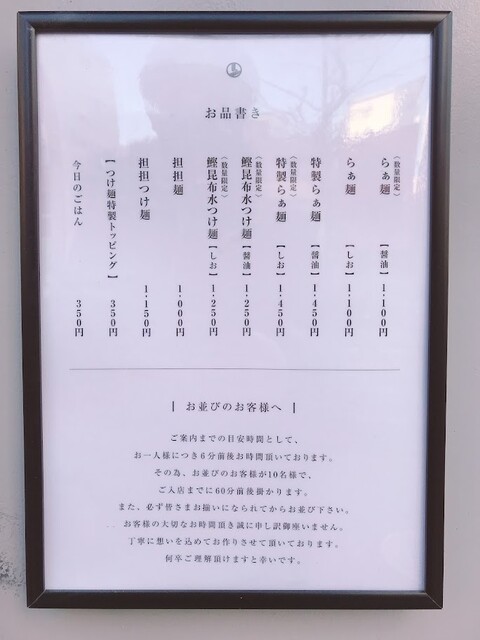 お品書き
（数量限定）
らぁ麺【醤油】1,100円
らぁ麺【しお】1,100円
特製らぁ麺【醤油】1,450円
（数量限定）
特製らぁ麺【しお】1,450円
（数量限定）
鰹昆布水つけ麺【醤油】1,250円
（数量限定）
鰹昆布水つけ麺【しお】1,250円
担担麺 1,000円
担担つけ麺 1,150円
【つけ麺特製トッピング】350円
今日のごはん 350円
| お並びのお客様へ |
ご案内までの目安時間として、
お一人様につき6分前後お時間頂いております。
その為、お並びのお客様が10名様で、
ご入店までに60分前後掛かります。
また、必ず皆さまお揃いになられてからお並び下さい。
お客様の大切なお時間頂き誠に申し訳御座いません。
丁寧に想いを込めてお作りさせて頂いております。
何卒ご理解頂けますと幸いです。